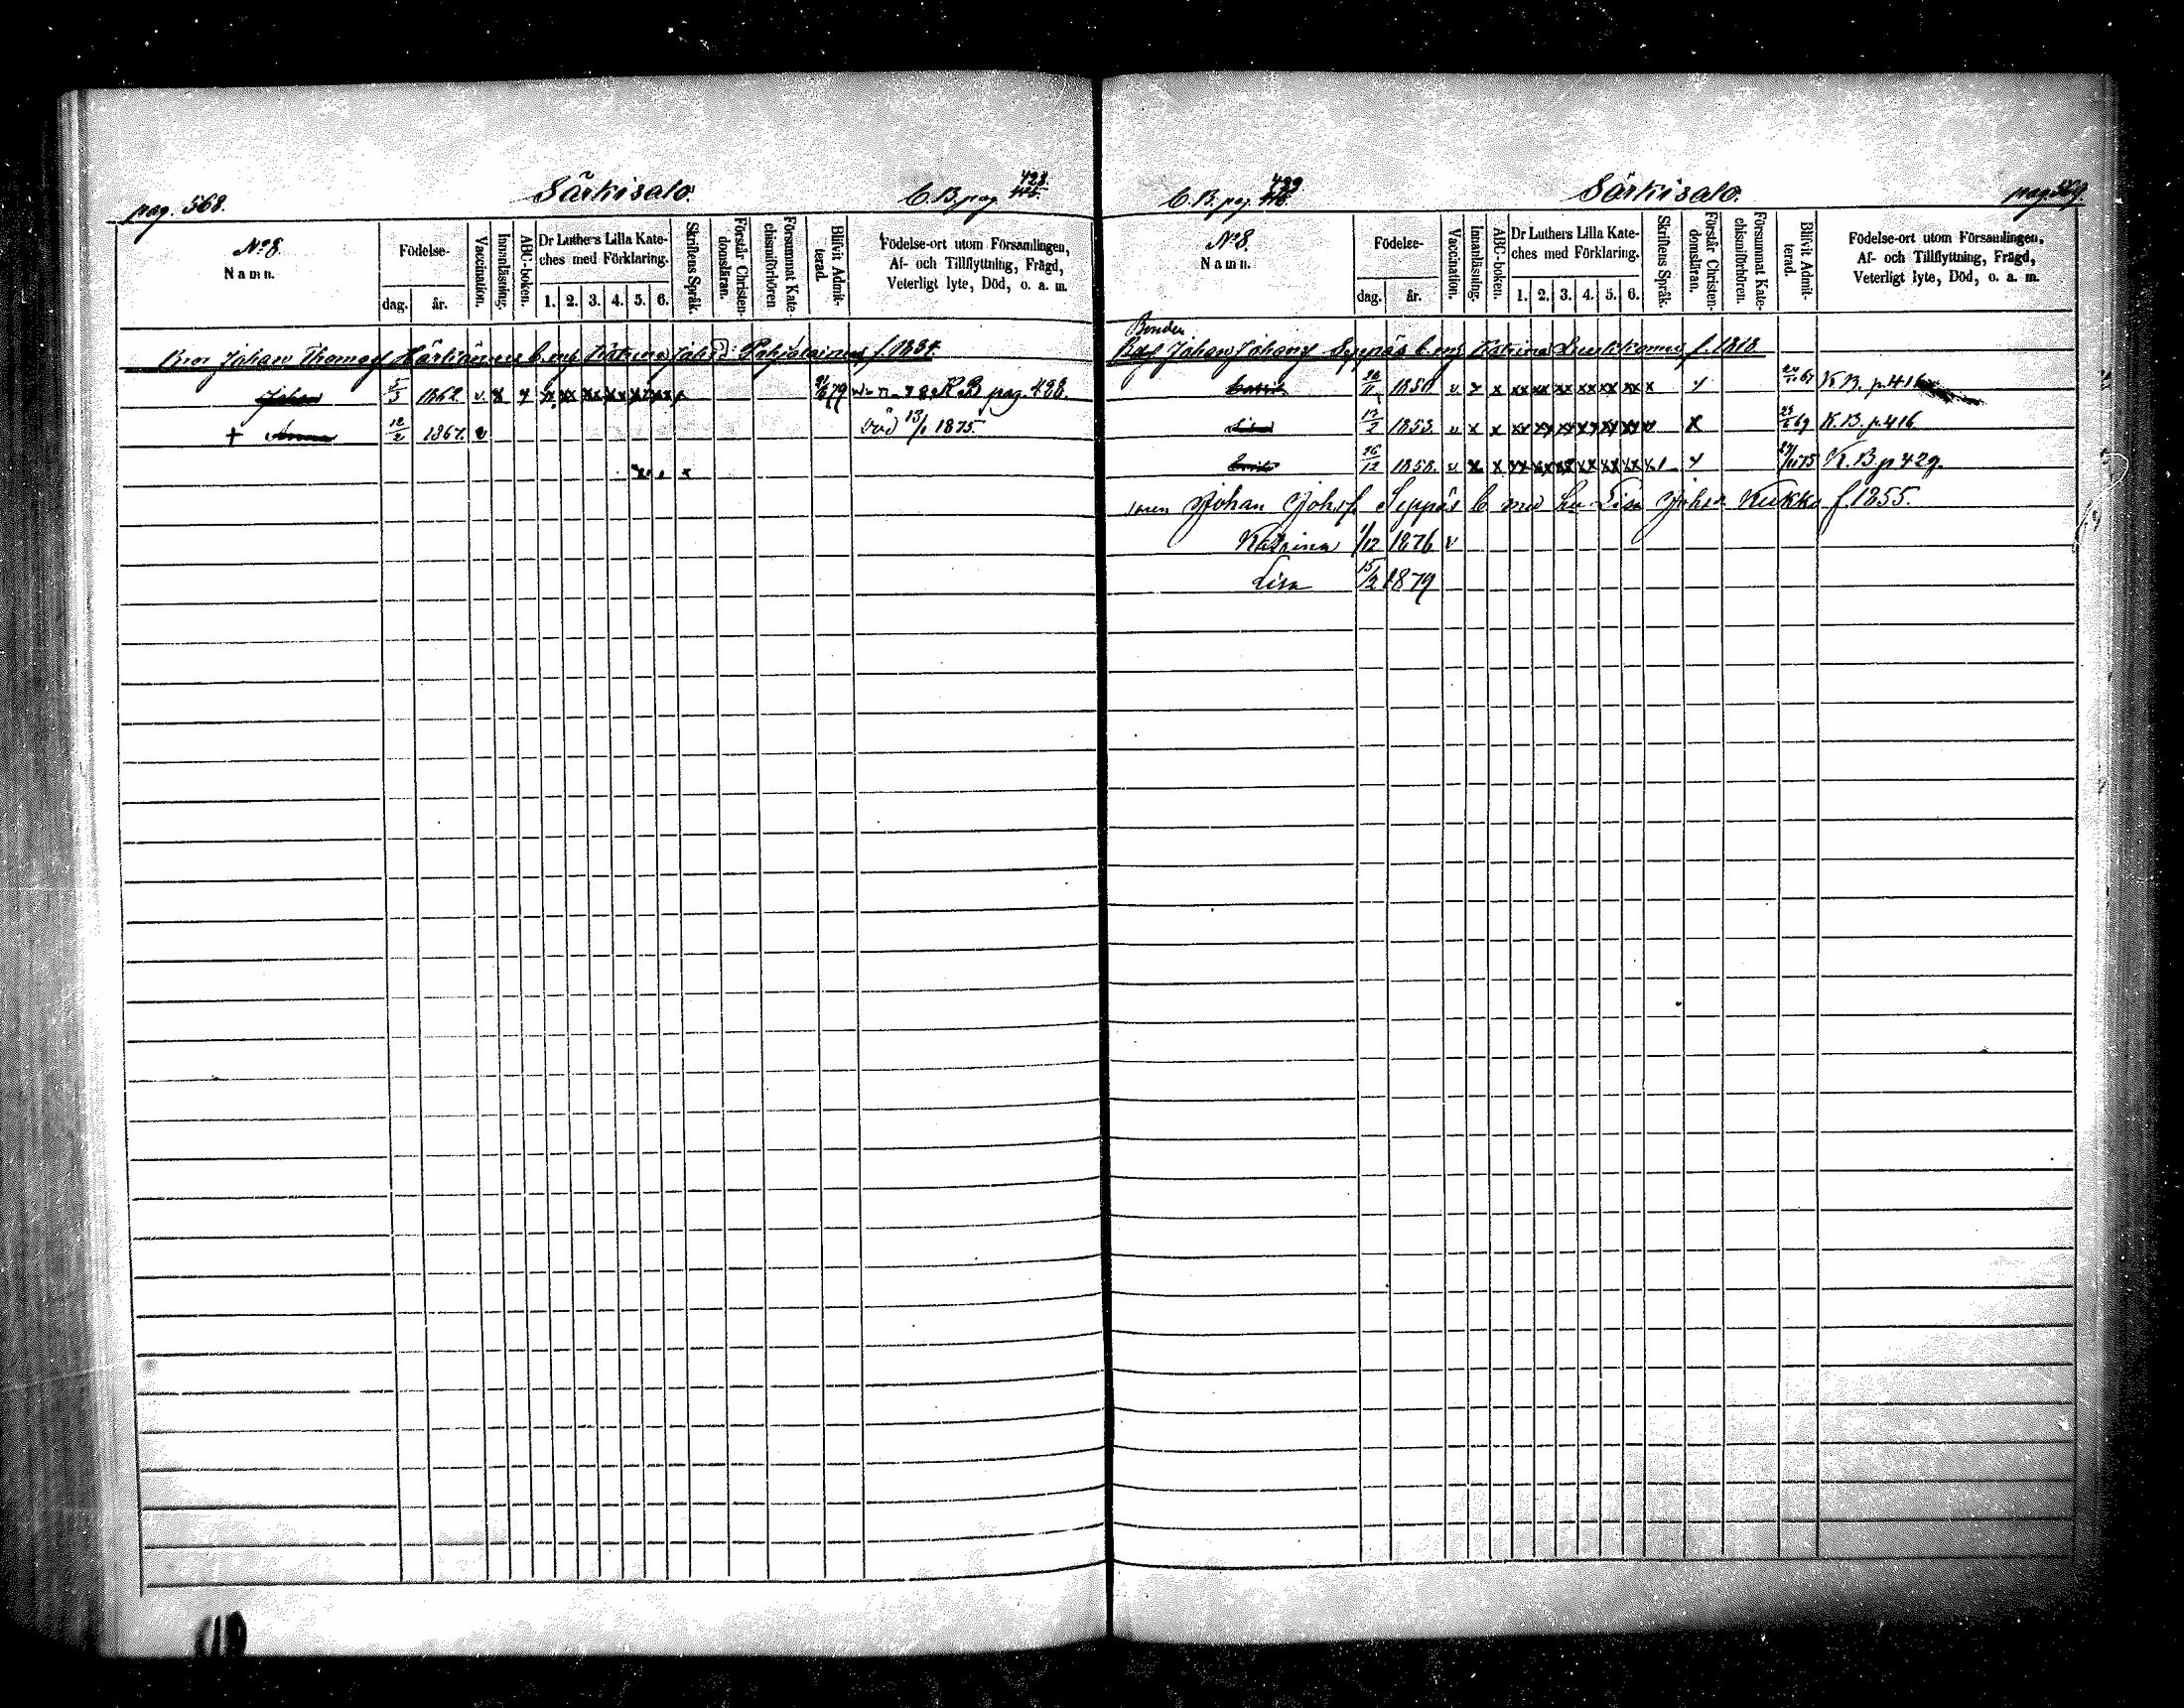 pag. 568. Särkisalo. C.B. pag. 428.
No 8. Namn. Födelse- dag. år. Vaccination. Innanläsning. ABC-boken. Dr Luthers Lilla Kateches med Förklaring. 1. 2. 3. 4. 5. 6. Skriftens Språk. Förstår Christendomsläran. Försummat Katechismiförhören Blifvit Admitterad. Födelse-ort utom Församlingen, Af- och Tillflyttning, Frägd, Veterligt lyte, Död, o. a. m.
Bror Johan Thomass Härkönen b. m. Katrina Johsd: Pohjolainen, f. 1834.
Johan 5/3 1862. v. x x x xx xx xx xx xx x 79 K.B. pag. 428.
+ Anna 12/2 1867. v Död 13/1 1875.
x x x
C.B. pag. 429 Särkisalo. pag. 569.
No 8. Namn. Födelse- dag. år. Vaccination. Innanläsning. ABC-boken. Dr Luthers Lilla Kateches med Förklaring. 1. 2. 3. 4. 5. 6. Skriftens Språk. Förstår Christendomsläran. Försummat Katechismiförhören. Blifvit Admitterad. Födelse-ort utom Församlingen, Af- och Tillflyttning, Frägd, Veterligt lyte, Död, o. a. m.
Bonden
Johan Johans Seppäs b. m. Katrina f. 1818
1850. v x x xx xx xx xx xx xx x x 67 K.B. p. 416
17/2 1853. v x x xx xx xx xx xx xx x x 69 K.B. p. 416
26/12 1858. v x x xx xx xx xx xx xx x x 75 K.B. p. 429.
sonen Johan Johsf Seppäs b. med hu Lisa Johsd Kukko f. 1855.
Katrina 1/12 1876 v
Lisa 15/2 1879